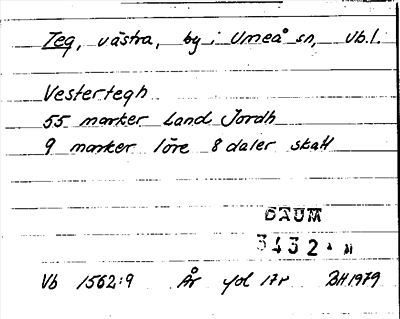 Teg, västra, by i Umeå sn, Vb.l.
Vestertegh
55 marker Land Jordh
9 marker löre 8 daler skatt
DAUM
3432
Vb 1562:9 År fol 17r BH 1979